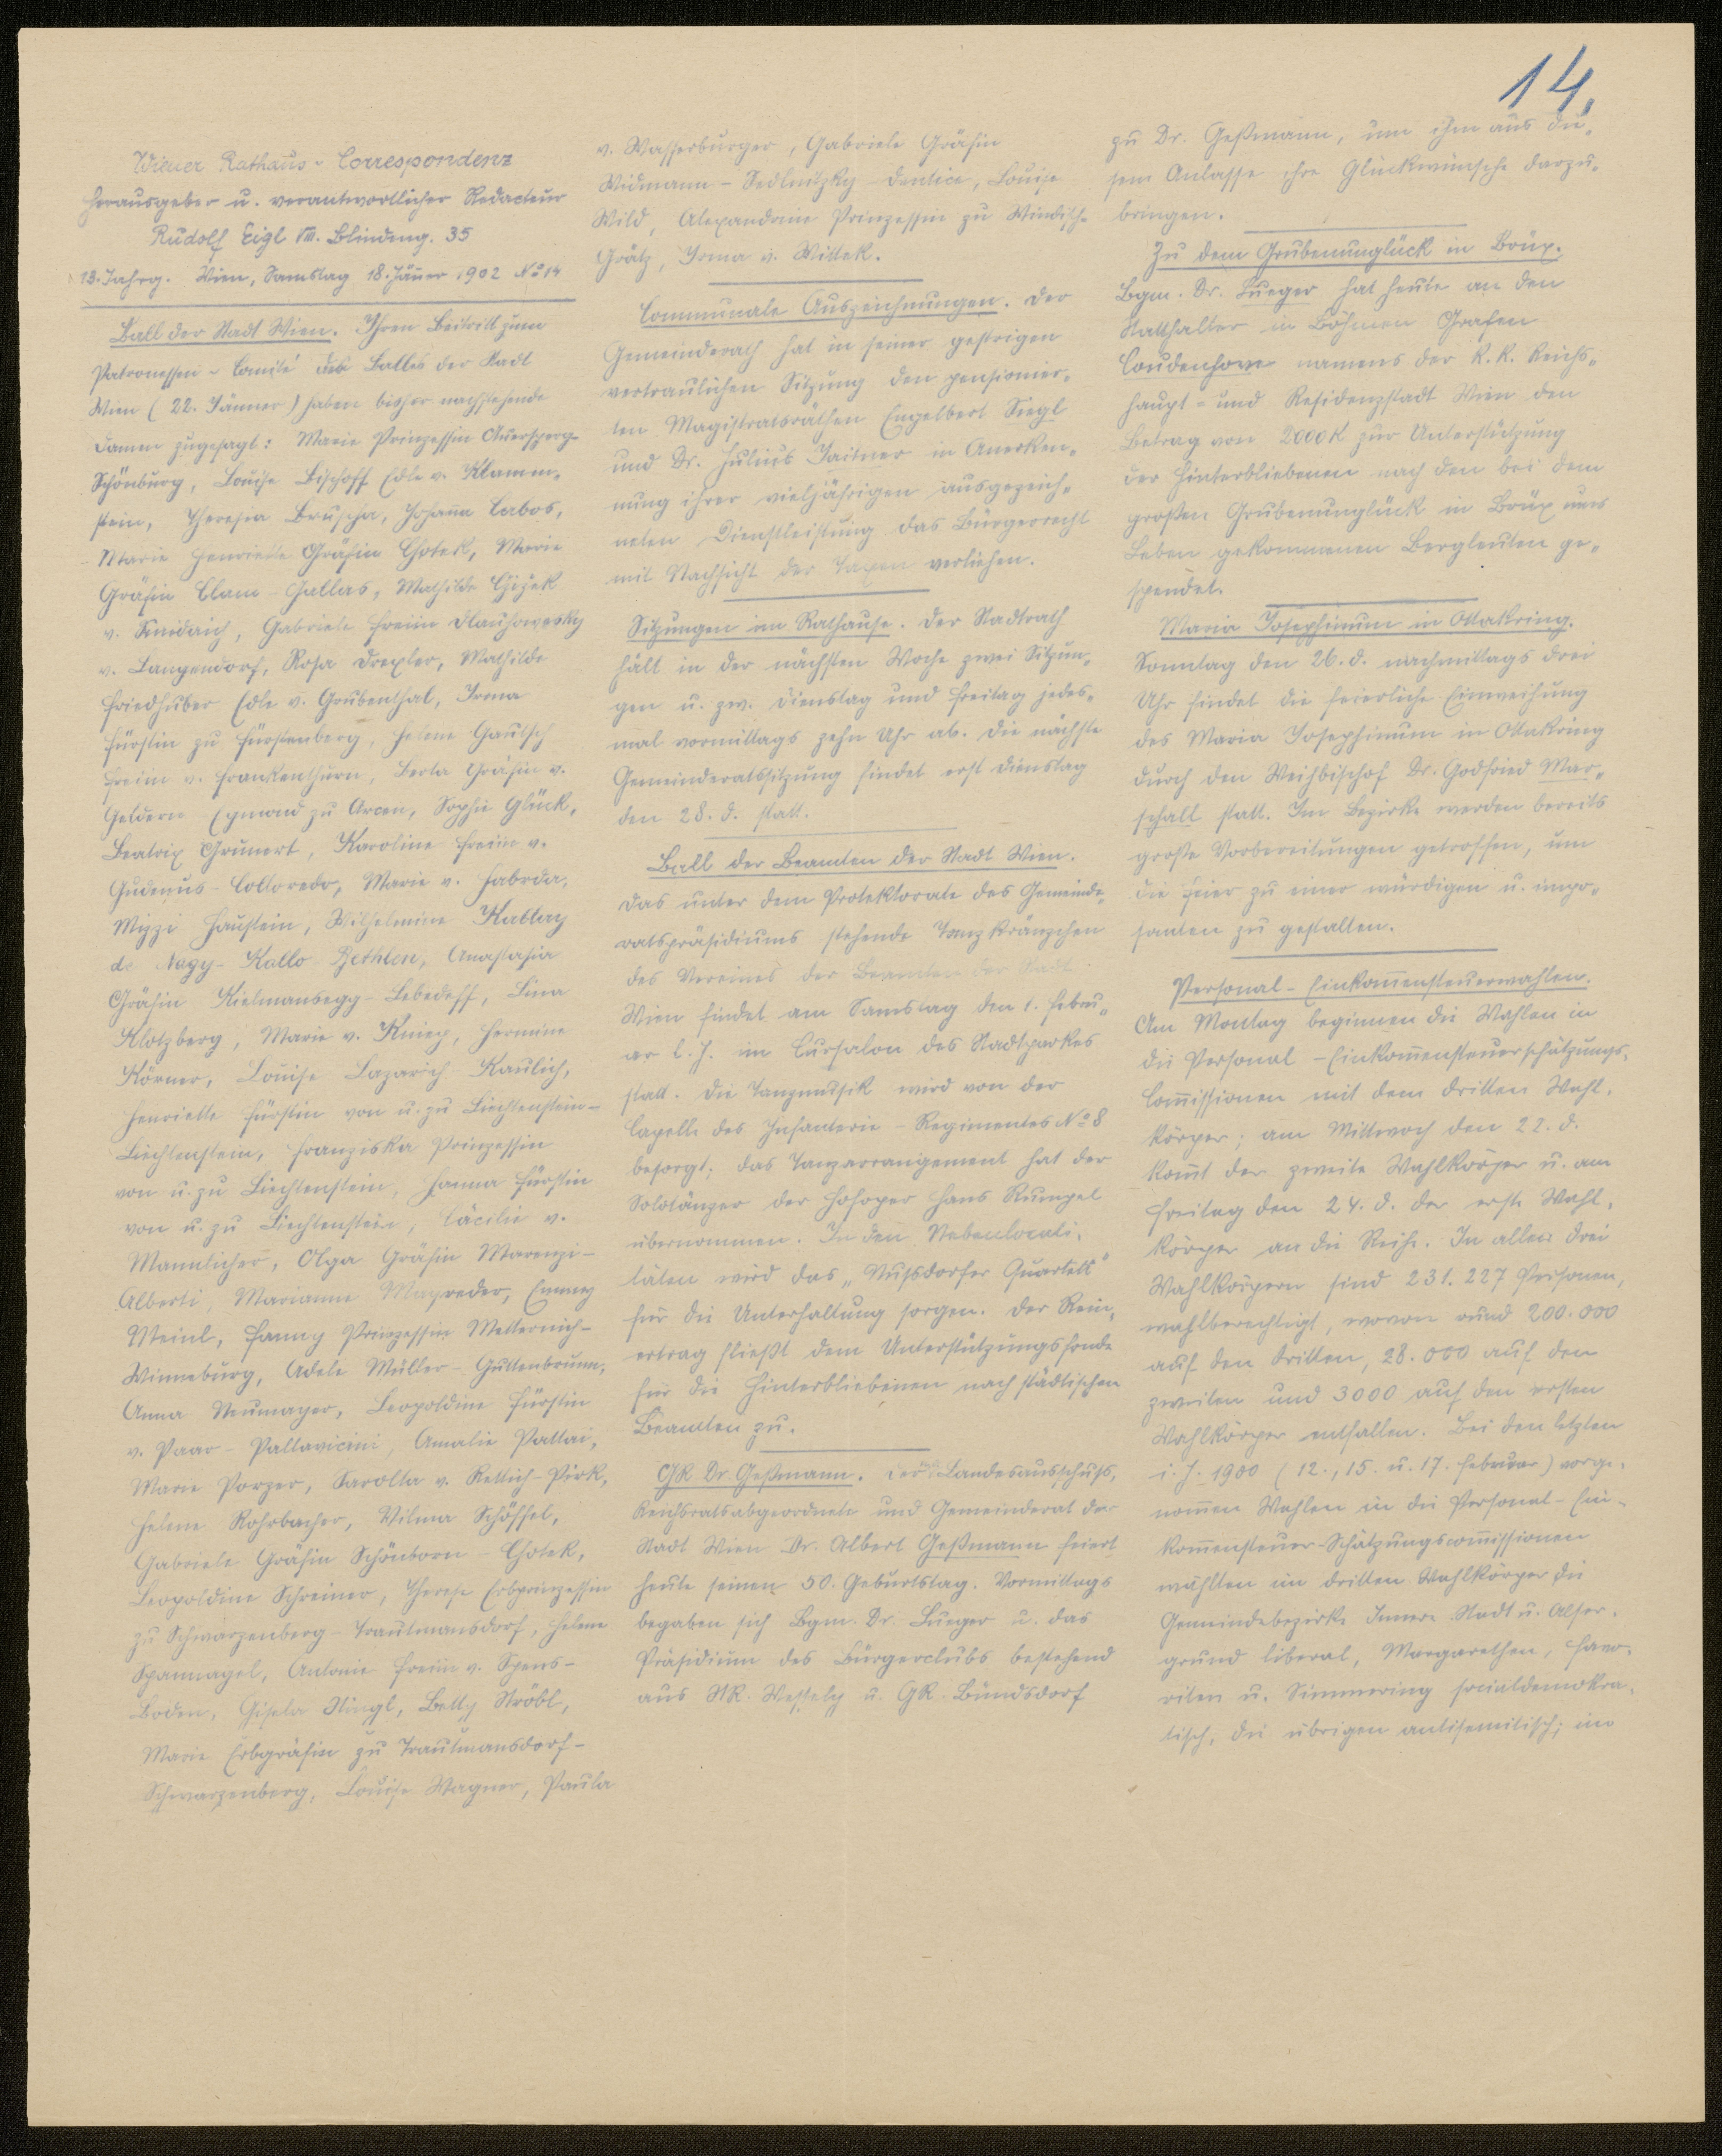 14.
Wiener Rathaus-Correspondenz
Herausgeber u. verantwortlicher Redacteur
Rudolf Eigl VIII. Blindeng. 35
13. Jahrg. Wien, Samstag 18. Jänner 1902 No 14
Ball der Stadt Wien. Ihren Beitritt zum
Patronessen-Comité des Balles der Stadt
Wien (22. Jänner) haben bisher nachstehende
Damen zugesagt: Marie Prinzessin Auersperg-
Schönburg, Louise Bischoff Edle v. Klamm-
stein, Theresia Brusha, Johanna Cabos,
Marie Henriette Gräfin Chotek, Marie
Gräfin Clam-Gallas, Mathilde Cžižek
v. Smidaich, Gabriele Freiin Dlauhowesky
v. Langendorf, Rosa Drexler, Mathilde
Friedhuber Edle v. Grubenthal, Irma
Fürstin zu Fürstenberg, Helene Gautsch
Freiin v. Frankenthurn, Berta Gräfin v.
Geldern Egmond zu Arcen, Sophie Glück,
Beatrix Grunert, Karoline Freiin v.
Gudenus-Colloredo, Marie v. Fabrda,
Mizzi Haustein, Wilhelmine Kallay
de Nagy-Kallo Bethlen, Anastasia
Gräfin Kielmansegg-Lebedeff, Lina
Klotzberg, Marie v. Kniep, Hermine
Körner, Louise Lazarich Kaulich,
Henriette Fürstin von u. zu Liechtenstein-
Liechtenstein, Franziska Prinzessin
von u. zu Liechtenstein, Hanna Fürstin
von u. zu Liechtenstein, Cäcilie v.
Mannlicher, Olga Gräfin Marenzi-
Alberti, Marianne Mayreder, Emmy
Meinl, Fanny Prinzessin Metternich-
Winneburg, Adele Müller-Guttenbrunn,
Anna Neumayer, Leopoldine Fürstin
v. Paar-Pallavicini, Amalie Pattai,
Marie Porzer, Sarolta v. Rettich-Pirk,
Helene Rohrbacher, Vilma Schöffel,
Gabriele Gräfin Schönborn-Chotek,
Leopoldine Schreiner, Therese Erbprinzessin
zu Schwarzenberg-Trautmansdorf, Helene
Spannagel, Antonie Freiin v. Spens-
Boden, Gisela Stingl, Betty Ströbl,
Marie Erbgräfin zu Trautmansdorf-
Schwarzenberg, Louise Wagner, Paula
v. Wasserburger, Gabriele Gräfin
Widmann-Sedlnitzky-Dentice, Louise
Wild, Alexandrine Prinzessin zu Windisch-
Grätz, Irma v. Wittek.
Communale Auszeichnungen. Der
Gemeinderath hat in seiner gestrigen
vertraulichen Sitzung den pensionier-
ten Magistratsräthen Engelbert Siegl
und Dr. Julius Jaitner in Anerken-
nung ihrer vieljährigen ausgezeich-
neten Dienstleistung das Bürgerrecht
mit Nachsicht der Taxen verliehen.
Sitzungen im Rathause. Der Stadtrath
hält in der nächsten Woche zwei Sitzun-
gen u. zw. Dienstag und Freitag jedes-
mal vormittags zehn Uhr ab. Die nächste
Gemeinderatssitzung findet erst Dienstag
den 28. d. statt.
Ball der Beamten der Stadt Wien.
Das unter dem Protektorate des Gemeinde-
ratspräsidiums stehende Tanzkränzchen
des Vereines der Beamten der Stadt
Wien findet am Samstag den 1. Febru-
ar l. J. im Cursalon des Stadtparkes
statt. Die Tanzmusik wird von der
Capelle des Infanterie-Regimentes No 8
besorgt; das Tanzarrangement hat der
Solotänzer der Hofoper Hans Rumpel
übernommen. In den Nebenlocali-
täten wird das „Nußdorfer Quartett“
für die Unterhaltung sorgen. Der Rein-
ertrag fließt dem Unterstützungsfonde
für die Hinterbliebenen nach städtischen
Beamten zu.
GR Dr. Geßmann. Der Landesausschuß,
Reichsratsabgeordnete und Gemeinderat der
Stadt Wien Dr. Albert Geßmann feiert
heute seinen 50. Geburtstag. Vormittags
begaben sich Bgm. Dr. Lueger u. das
Präsidium des Bürgerclubs bestehend
aus StR. Wessely u. GR. Bündsdorf
zu Dr. Geßmann, um ihm aus die-
sem Anlasse ihre Glückwünsche darzu-
bringen.
Zu dem Grubenunglück in Brüx.
Bgm. Dr. Lueger hat heute an den
Statthalter in Böhmen Grafen
Coudenhove namens der k. k. Reichs-
haupt- und Residenzstadt Wien den
Betrag von 2000 K zur Unterstützung
der Hinterbliebenen nach den bei dem
großen Grubenunglück in Brüx ums
Leben gekommenen Bergleuten ge-
spendet.
Maria Josephinum in Ottakring.
Sonntag den 26. d. nachmittags drei
Uhr findet die feierliche Einweihung
des Maria Josephinum in Ottakring
durch den Weihbischof Dr. Godfried Mar-
schall statt. Im Bezirke werden bereits
große Vorbereitungen getroffen, um
die Feier zu einer würdigen u. impo-
santen zu gestalten.
Personal-Einkom̄ensteuerwahlen.
Am Montag beginnen die Wahlen in
die Personal-Einkom̄ensteuerschätzungs-
Com̄issionen mit dem dritten Wahl-
körper; am Mittwoch den 22. d.
kom̄t der zweite Wahlkörper u. am
Freitag den 24. d. der erste Wahl-
körper an die Reihe. In allen drei
Wahlkörpern sind 231.227 Personen,
wahlberechtigt, wovon rund 200.000
auf den dritten, 28.000 auf den
zweiten und 3000 auf den ersten
Wahlkörper entfallen. Bei den letzten
i. J. 1900 (12., 15. u. 17. Februar) vorge-
nom̄men Wahlen in die Personal-Ein-
kom̄ensteuer-Schätzungscom̄issionen
wählten im dritten Wahlkörper die
Gemeindebezirke Innere Stadt u. Alser-
grund liberal, Margarethen, Favo-
riten u. Simmering socialdemokra-
tisch, die übrigen antisemitisch; im